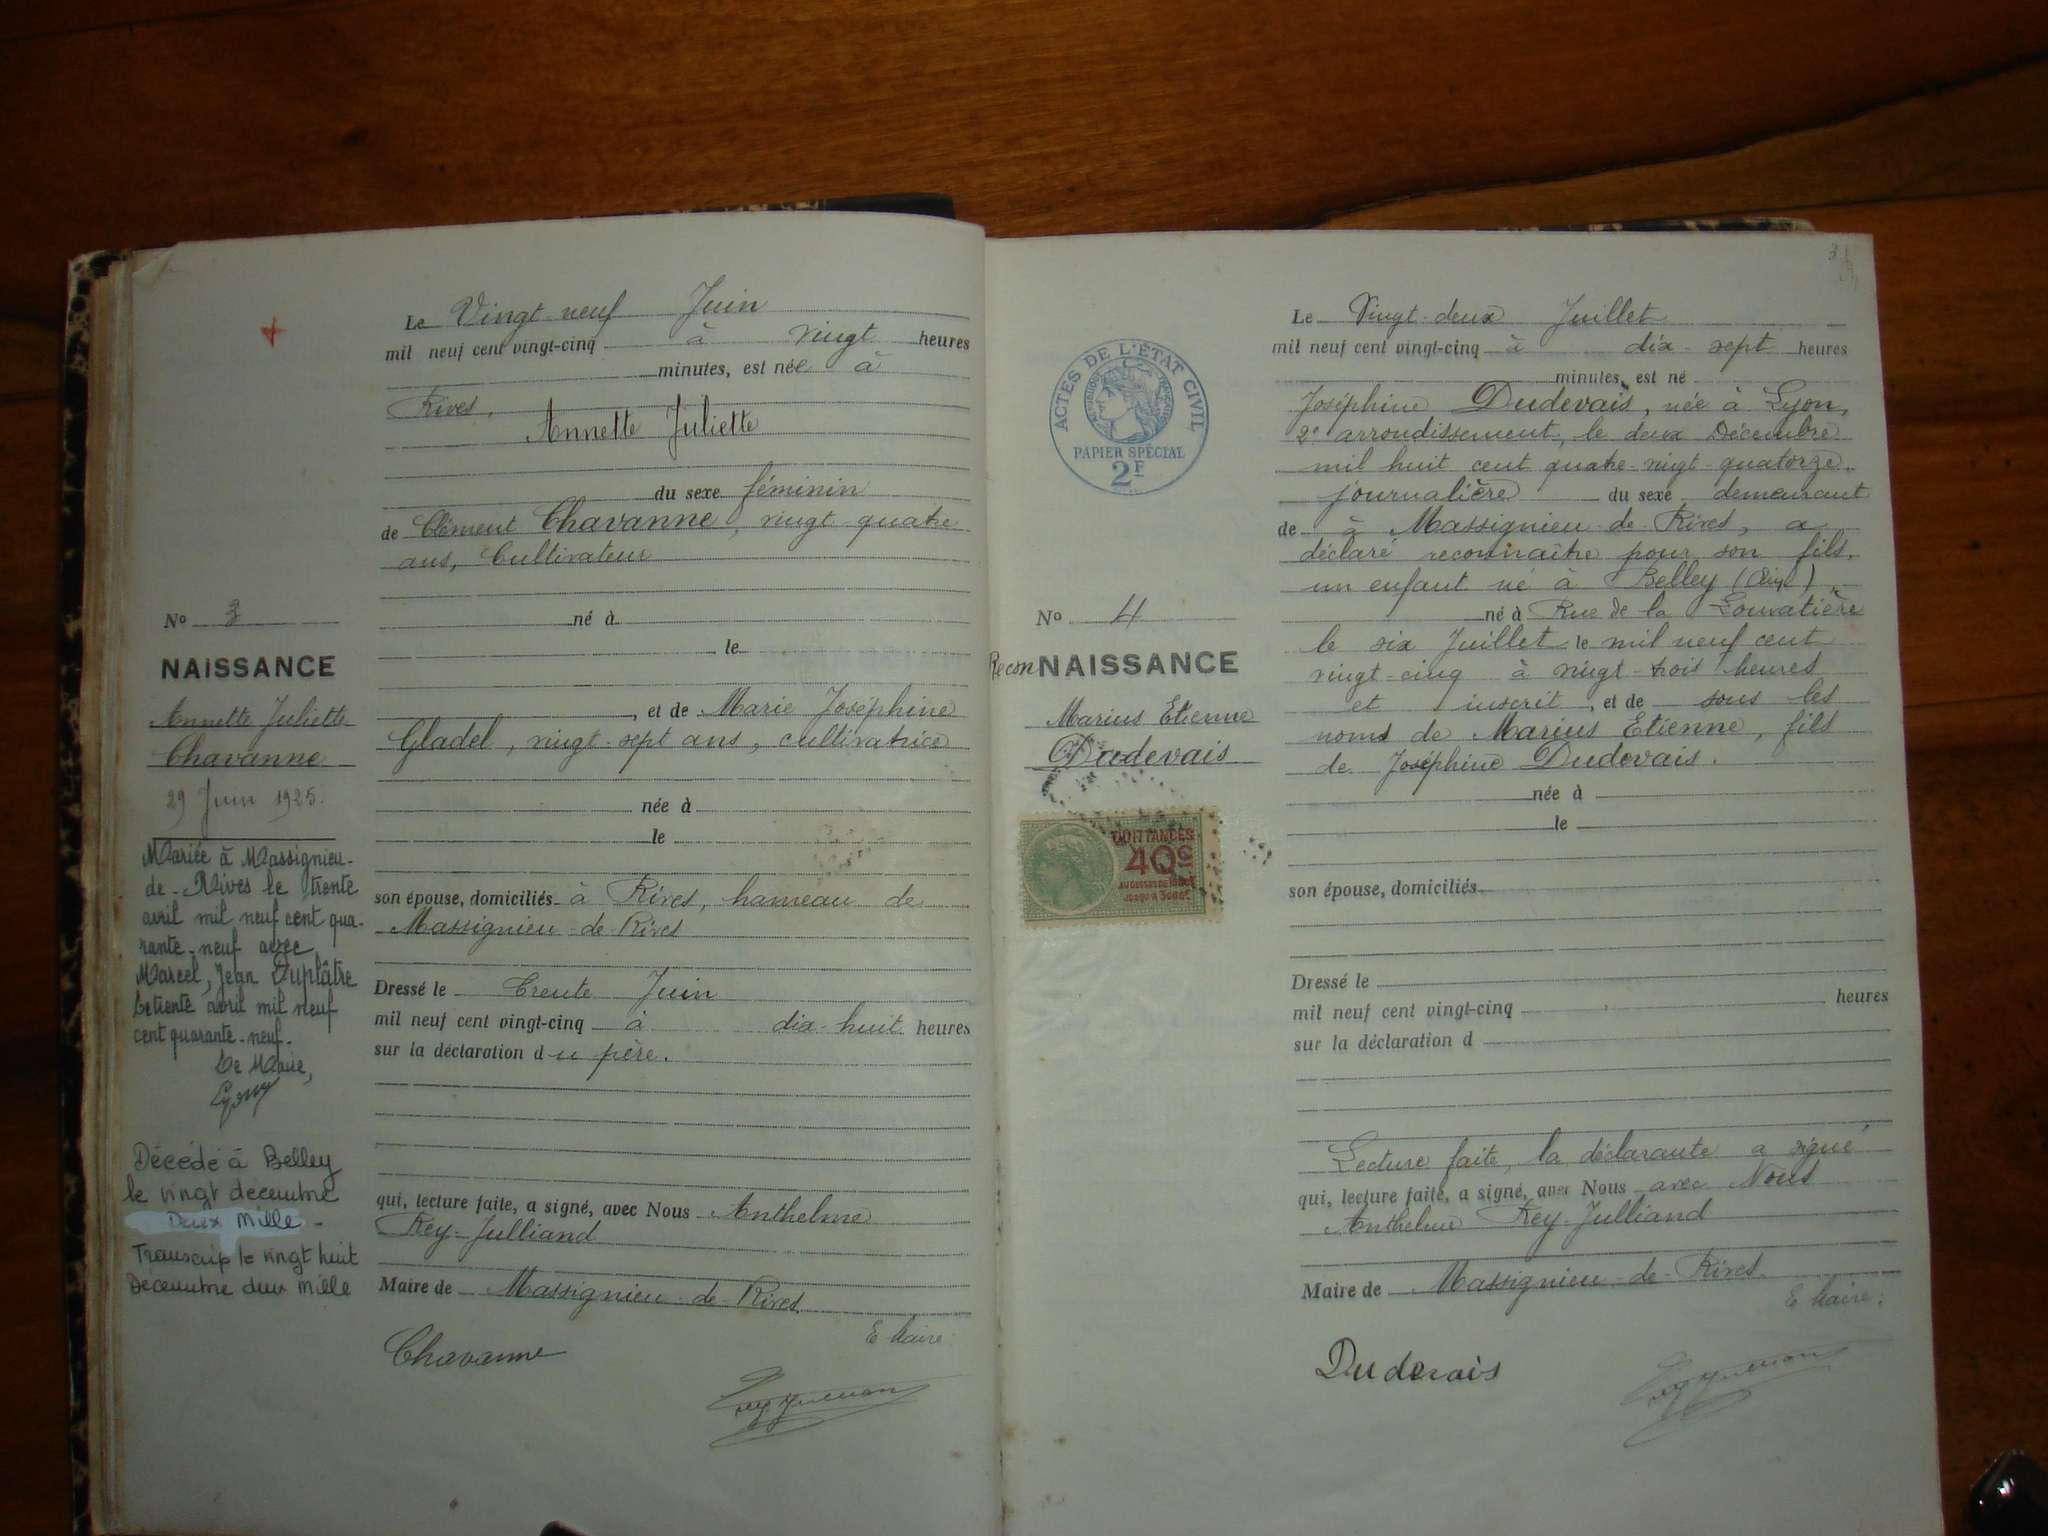 Le Vingt-neuf Juin
mil neuf cent vingt-cinq à vingt heures
minutes, est née à
Rives,
Annette Juliette
du sexe féminin
de Clément Chavanne, vingt quatre
ans, Cultivateur
né à
le
, et de Marie Joséphine
Gladel, vingt-sept ans, cultivatrice
née à
le
son épouse, domiciliés à Rives, hameau de
Massignieu-de-Rives
Dressé le Trente Juin
mil neuf cent vingt-cinq à dix-huit heures
sur la déclaration du père.
qui, lecture faite, a signé, avec Nous Anthelme
Rey-Julliand
Maire de Massignieu-de-Rives.
Le Maire
Chavanne
No 3
NAISSANCE
Annette Juliette
Chavanne
29 Juin 1925.
Mariée à Massignieu-
de-Rives le trente
avril mil neuf cent qua-
rante-neuf avec
Marcel, Jean Duplâtre
Le trente avril mil neuf
cent quarante-neuf.
Le Maire,
Décédé à Belley
le vingt decembre
Deux Mille -
Transcrip le vingt huit
Decembre deux mille
3
ACTES DE L'ÉTAT CIVIL
RÉPUBLIQUE FRANÇAISE
PAPIER SPÉCIAL
2F
No 4
ReconNAISSANCE
Marius Etienne
Dudevais
QUITTANCES
40c
Le Vingt-deux Juillet
mil neuf cent vingt-cinq à dix-sept heures
minutes, est né
Joséphine Dudevais, née à Lyon,
2e arrondissement, le deux Décembre
mil huit cent quatre-vingt-quatorze
journalière du sexe demeurant
de à Massignieu-de-Rives, a
déclaré reconnaître pour son fils,
un enfant né à Belley (Ain),
né à Rue de la Louvatière
le six Juillet le mil neuf cent
vingt-cinq à vingt-trois heures
et inscrit, et de sous les
noms de Marius Etienne, fils
de Joséphine Dudevais.
née à
le
son épouse, domiciliés
Dressé le
mil neuf cent vingt-cinq heures
sur la déclaration d
Lecture faite, la déclarante a signé
qui, lecture faite, a signé, avec Nous avec Nous
Anthelme Rey-Julliand
Maire de Massignieu-de-Rives.
Le Maire:
Dudevais